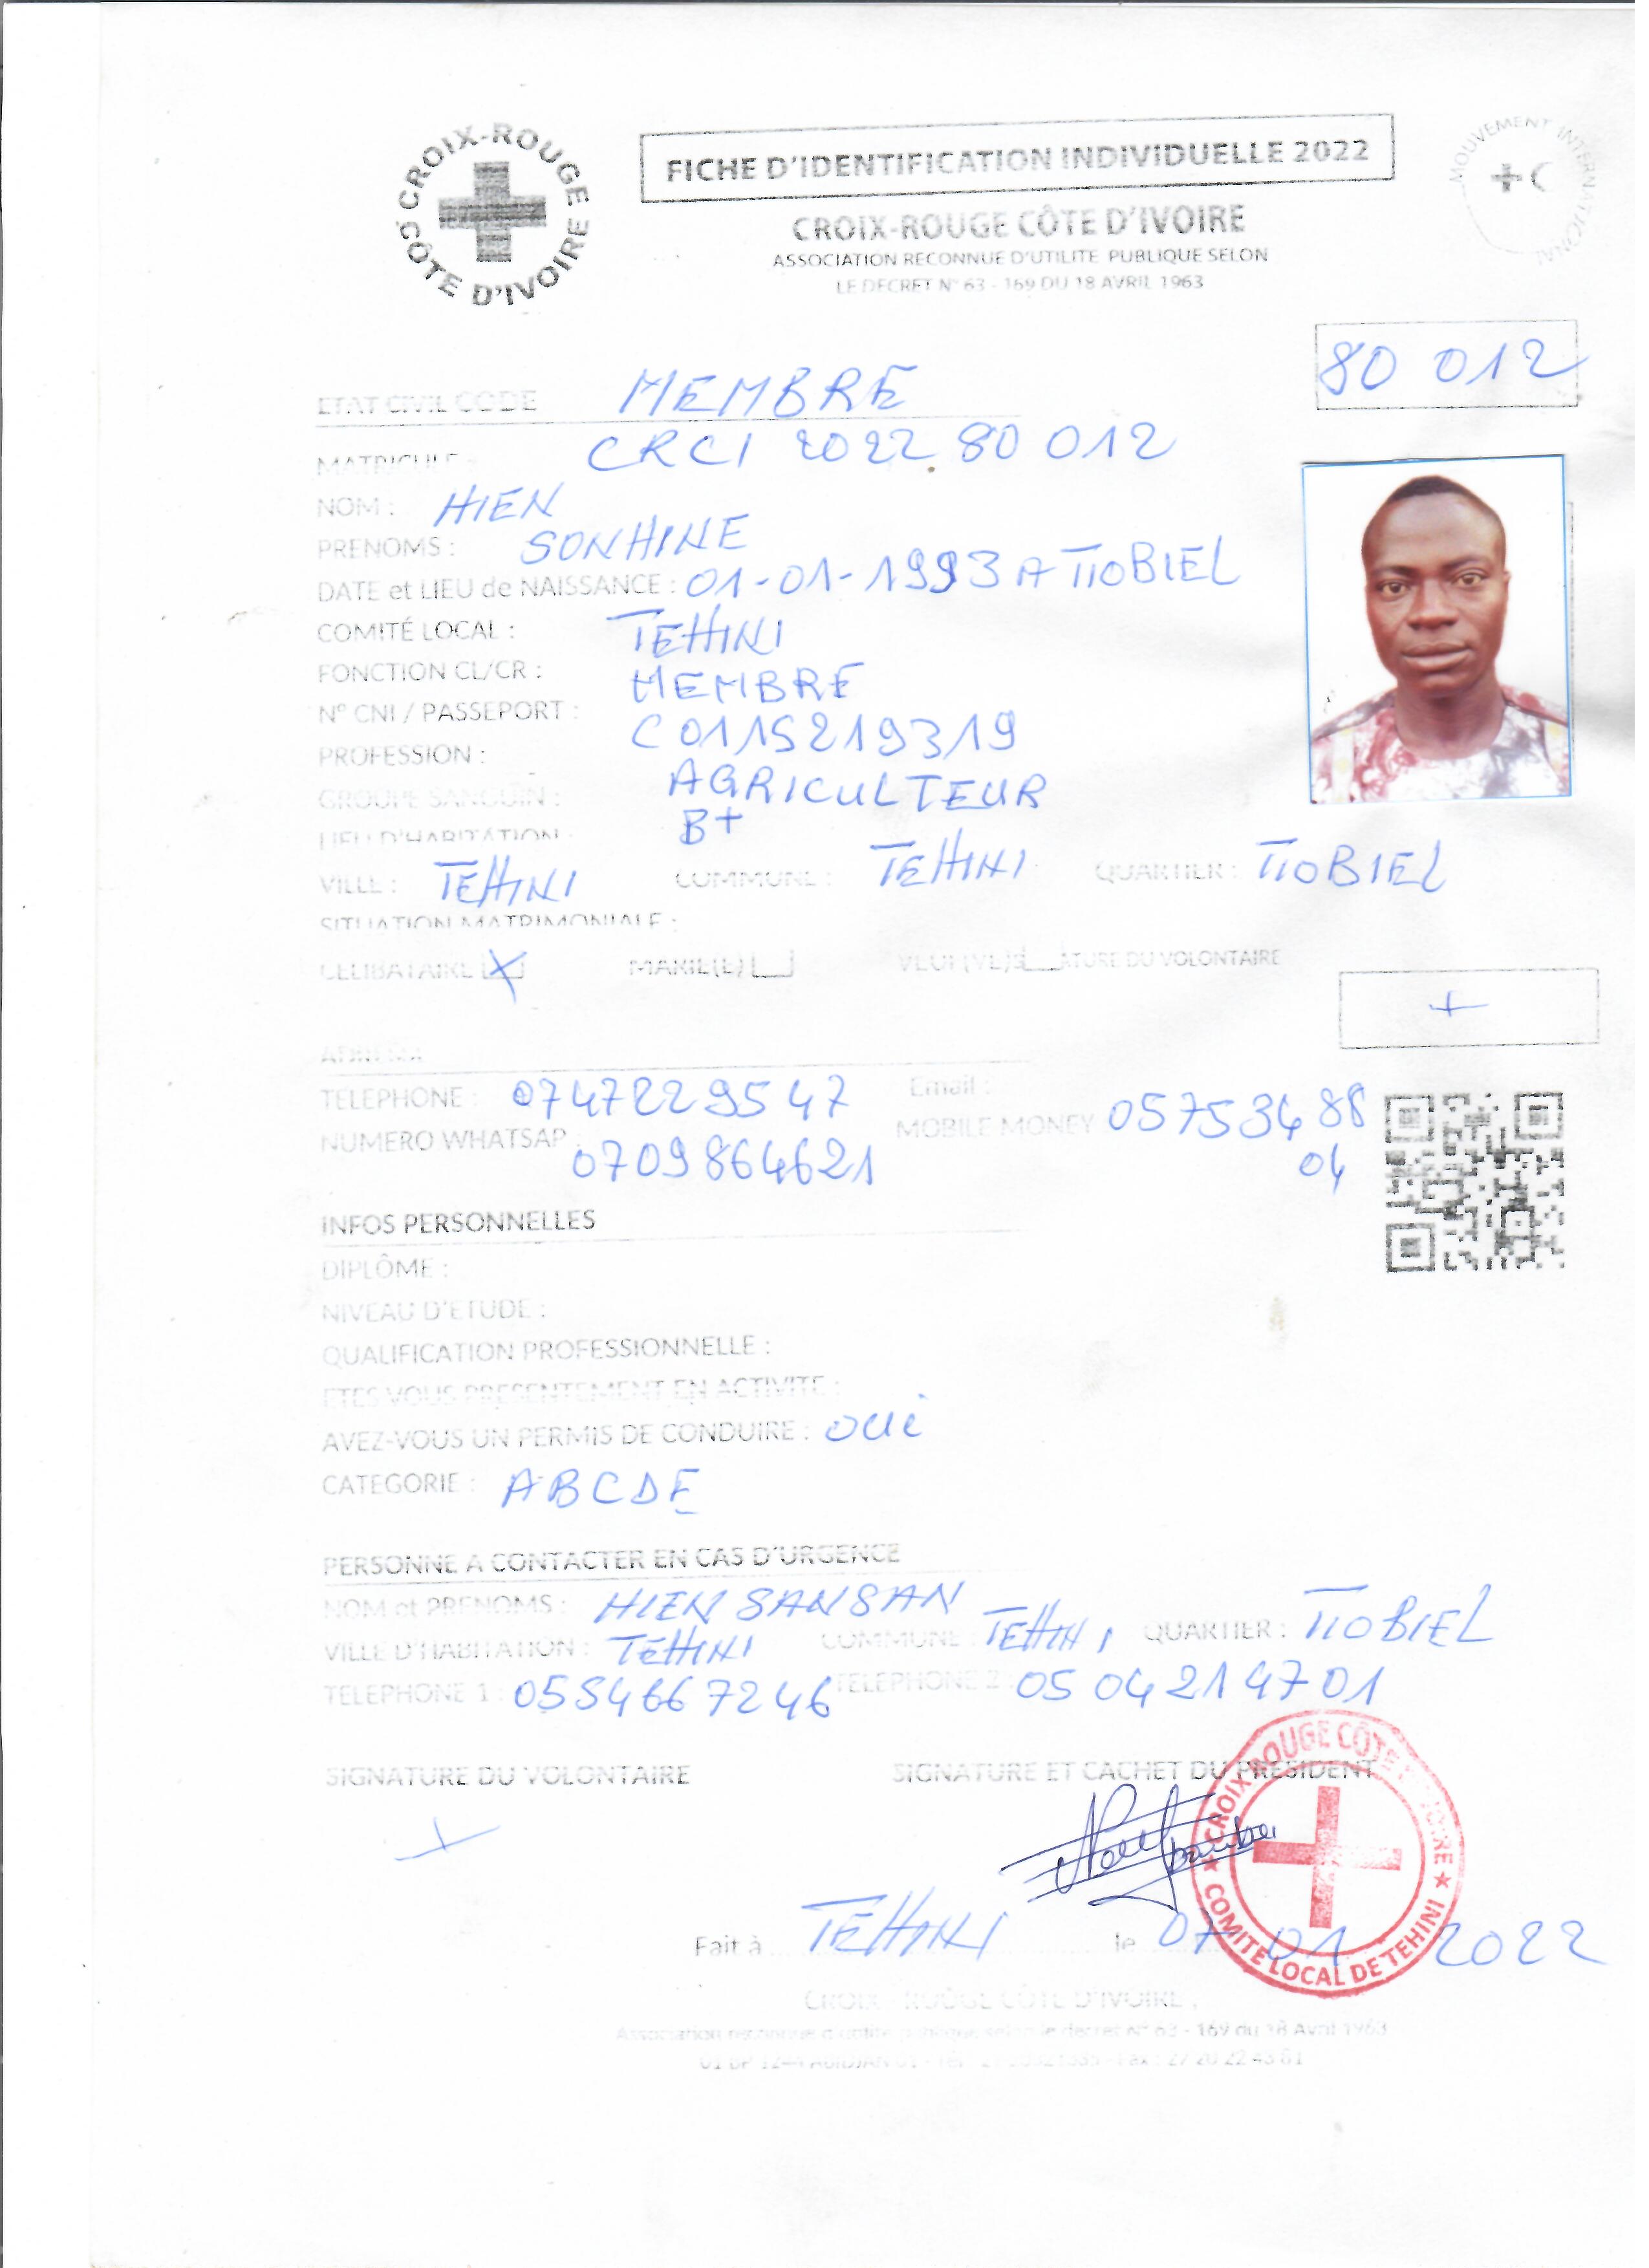 CROIX-ROUGE CÔTE D'IVOIRE
FICHE D'IDENTIFICATION INDIVIDUELLE 2022
MOUVEMENT INTERNATIONAL
CROIX-ROUGE CÔTE D'IVOIRE
ASSOCIATION RECONNUE D'UTILITE PUBLIQUE SELON
LE DECRET N° 63 - 169 DU 18 AVRIL 1963
80 012
ETAT CIVIL CODE MEMBRE
MATRICULE : CRCI 2022 80 012
NOM : HIEN
PRENOMS : SONHINE
DATE et LIEU de NAISSANCE : 01-01-1993 A TIOBIEL
COMITÉ LOCAL : TEHINI
FONCTION CL/CR : MEMBRE
N° CNI / PASSEPORT : C 0115219319
PROFESSION : AGRICULTEUR
GROUPE SANGUIN : B+
LIEU D'HABITATION :
VILLE : TEHINI COMMUNE : TEHINI QUARTIER : TIOBIEL
SITUATION MATRIMONIALE :
CELIBATAIRE X MARIE(E) VEUF(VE) ATURE DU VOLONTAIRE
TELEPHONE : 0747229547 Email :
NUMERO WHATSAP : 0709864621 MOBILE MONEY 05753488
04
INFOS PERSONNELLES
DIPLÔME :
NIVEAU D'ETUDE :
QUALIFICATION PROFESSIONNELLE :
ETES VOUS PRESENTEMENT EN ACTIVITE :
AVEZ-VOUS UN PERMIS DE CONDUIRE : oui
CATEGORIE : ABCDE
PERSONNE A CONTACTER EN CAS D'URGENCE
NOM et PRENOMS : HIEN SANSAN
VILLE D'HABITATION : TEHINI COMMUNE : TEHINI QUARTIER : TIOBIEL
TELEPHONE 1 : 0554667246 TELEPHONE 2 : 05 04 21 47 01
SIGNATURE DU VOLONTAIRE SIGNATURE ET CACHET DU PRESIDENT
CROIX ROUGE CÔTE D'IVOIRE
COMITE LOCAL DE TEHINI
Fait à TEHINI le 07 01 2022
CROIX - ROUGE CÔTE D'IVOIRE
Association reconnue d'utilité publique selon le décret N° 63 - 169 du 18 Avril 1963